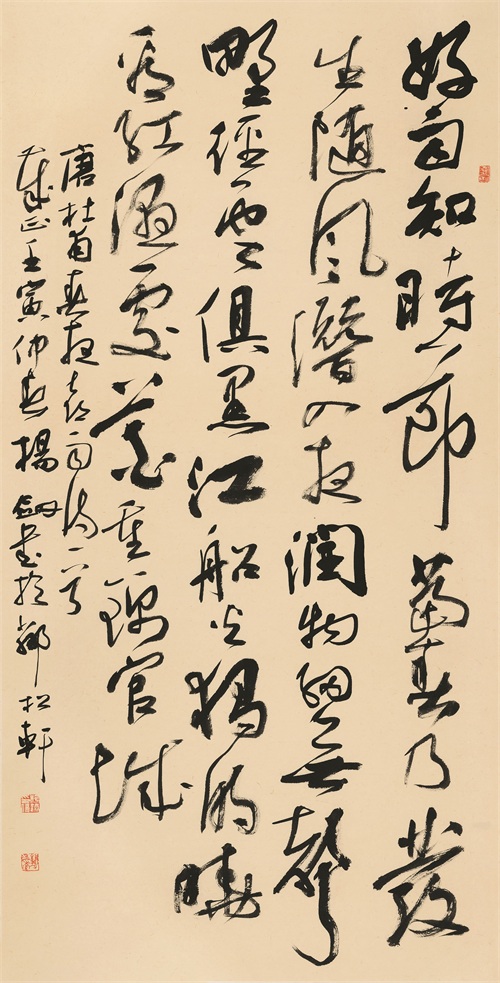 好雨知時節當春乃發
生隨風潛入夜潤物細無聲
野徑雲俱黑江船火獨明曉
看紅濕處花重錦官城
唐杜甫春夜喜雨詩一首
歲在壬寅仲春楊劍書於鄰松軒